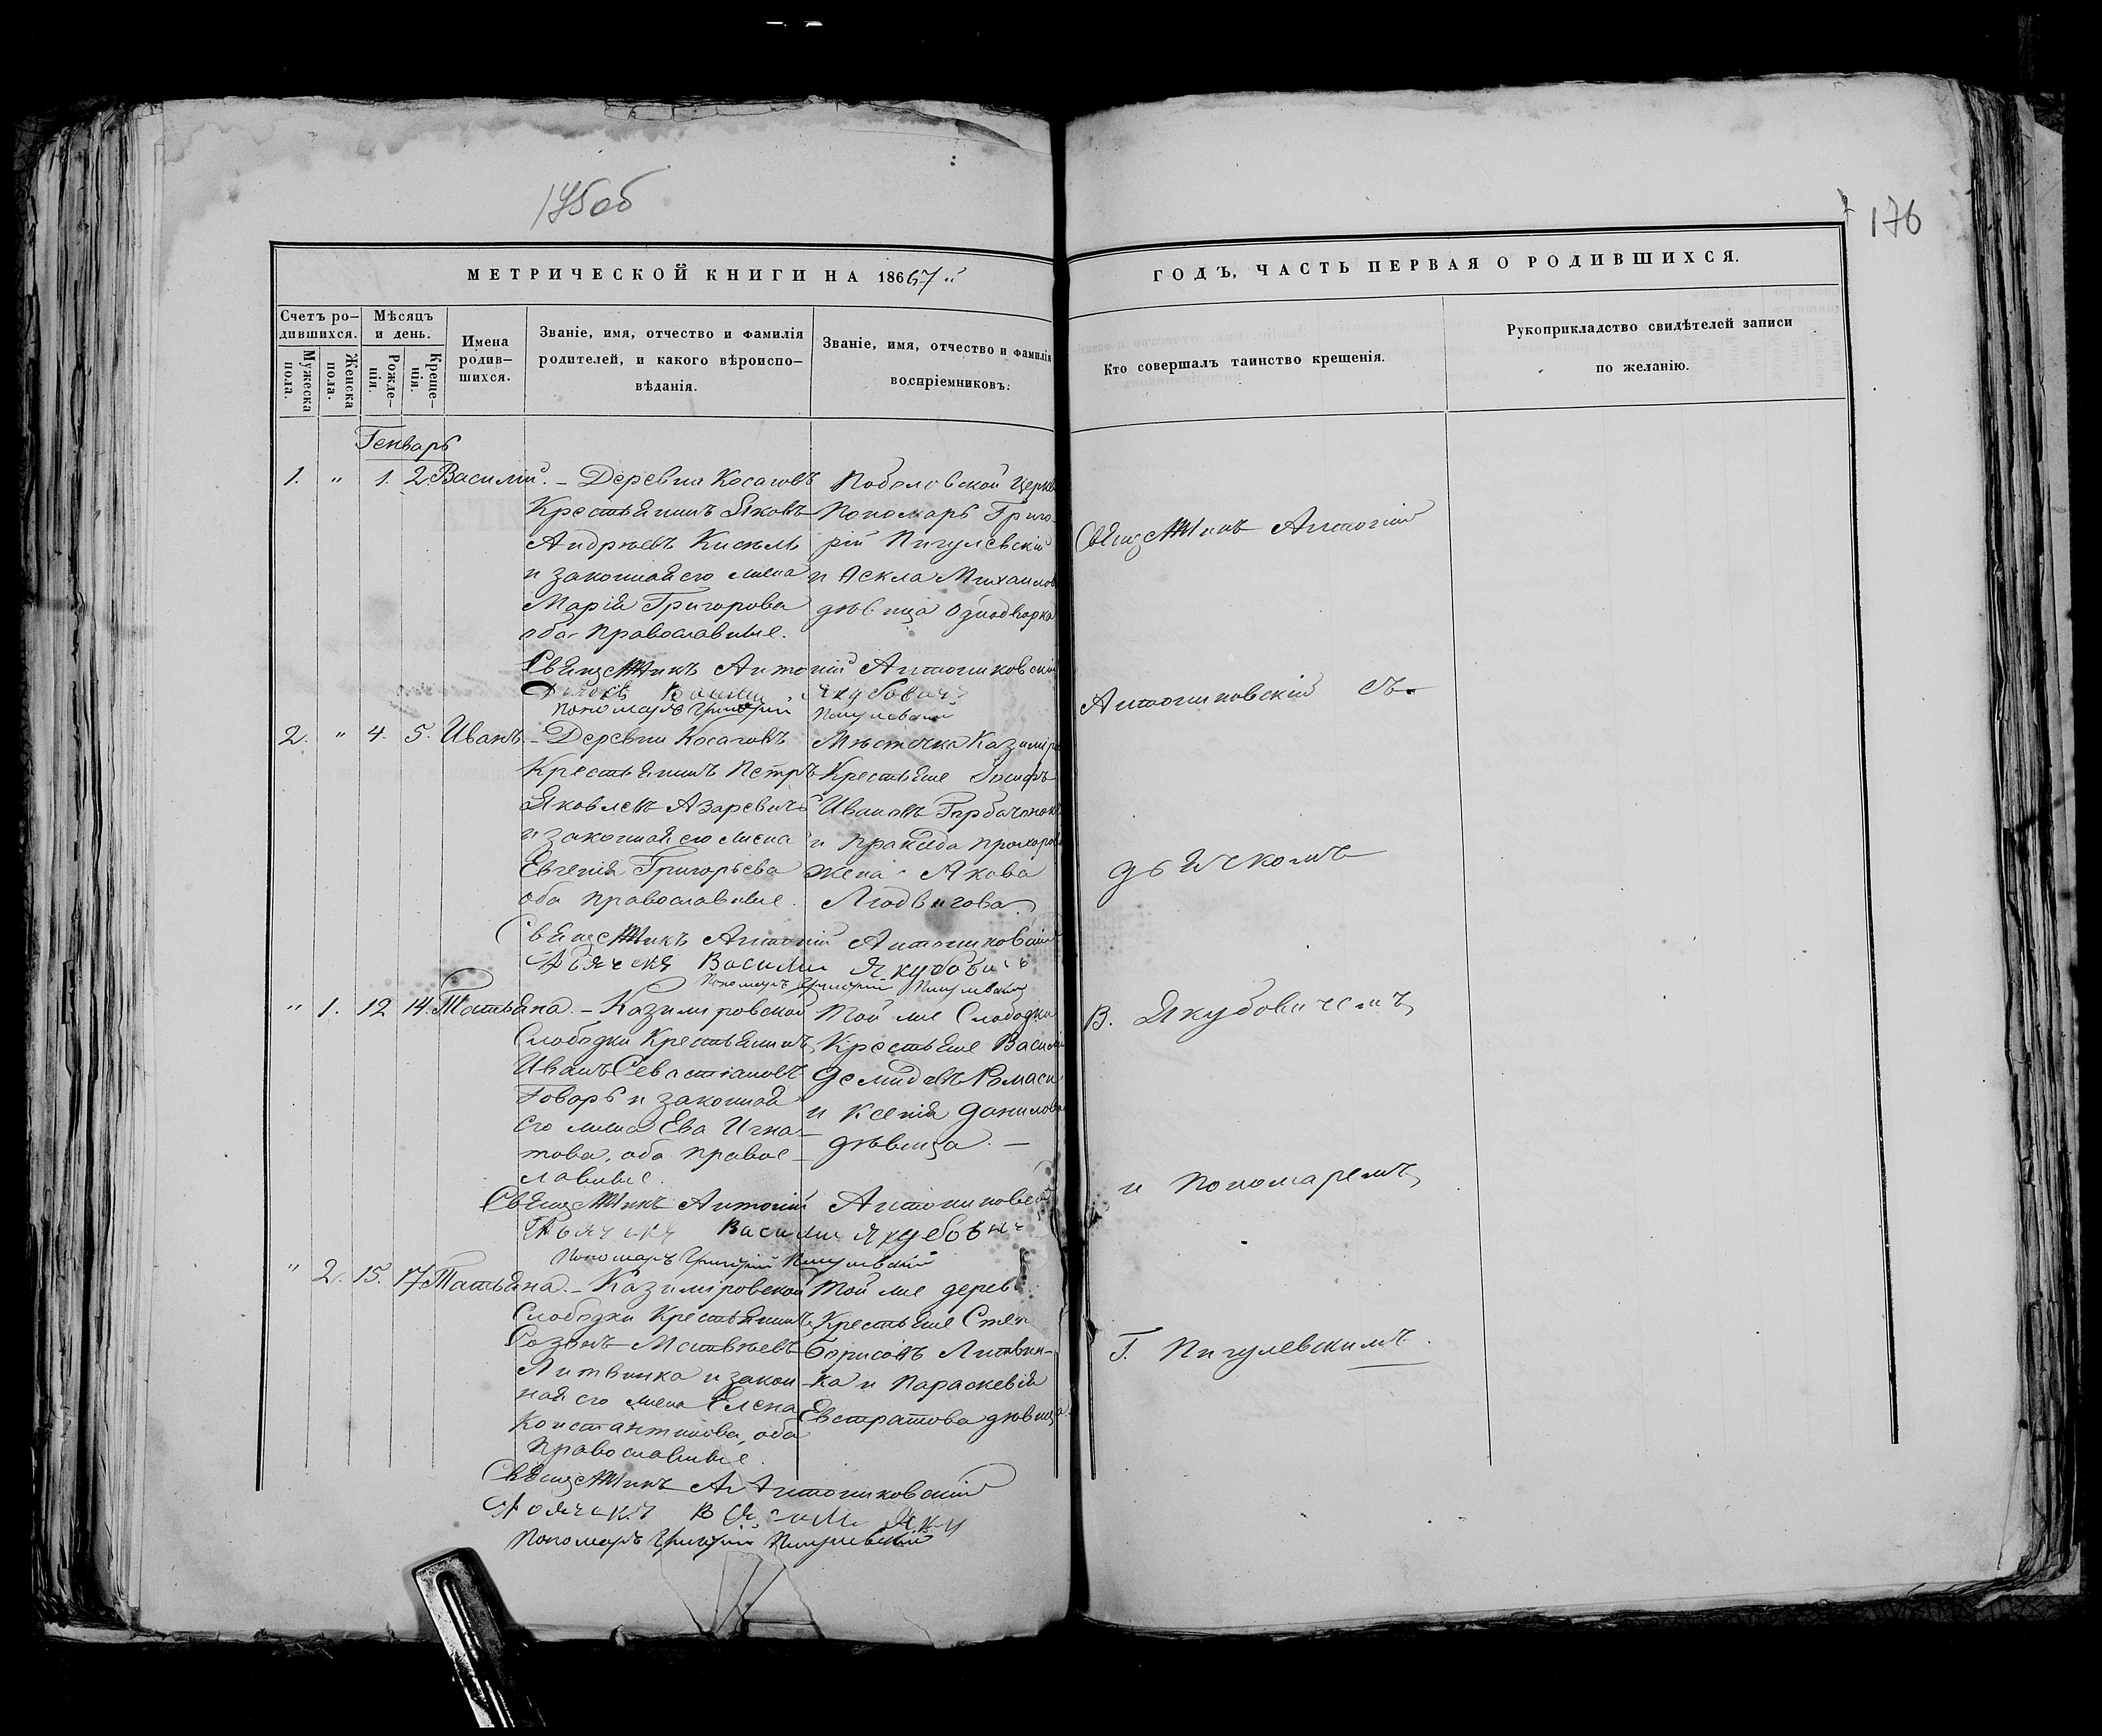 175об
176
МЕТРИЧЕСКОЙ КНИГИ НА 18667й
ГОДЪ, ЧАСТЬ ПЕРВАЯ О РОДИВШИХСЯ.
Счетъ ро-
дившихся.
Мужеска
пола.
Женска
пола.
Мѣсяцъ
и день.
Рожде-
нія.
Креще-
нія.
Имена
родив-
шихся.
Званіе, имя, отчество и фамилія
родителей, и какого вѣроиспо-
вѣданія.
Званіе, имя, отчество и фамилія
воспріемниковъ.
Кто совершалъ таинство крещенія.
Рукоприкладство свидѣтелей записи
по желанію.
Генварь
1. " 1. 2. Василій. –
Деревни Косаговъ
Крестьянинъ Яковъ
Андреевъ Кисель
и законная его жена
Марія Григорова
оба православные.
Поболовской Церкв
Пономарь Григо-
рій Пигулевскій
и Ѳекла Михаилов
дѣвица Однодворка
Священникъ Антоній Антониковскій
Дьячекъ Василій Якубовичъ
Пономарь Григорій Пигулевскій
2. " 4. 5. Иванъ. –
Деревни Косаговъ
Крестьянинъ Петръ
Яковлевъ Азаревичъ
и законная его жена
Евгенія Григорьева
оба православные.
Мѣстечка Казимір
Крестьяне Іосифъ
Ивановъ Горбаченокъ
и Прохорова
жена Якова
Людвигова.
Священникъ Антоній Антониковскій
Дьячекъ Василий Якубовичъ
Пономарь Григорій Пигулевскій
" 1. 12 14. Татьяна. –
Казиміровской
Слободки Крестьянинъ
Иванъ Севастіановъ
Говоръ и законная
его жена Ева Игна-
това, оба право-
славные.
Той же Слободки
Крестьяне Василій
Демидовъ
и Ксенія Данилова
дѣвица. –
Священникъ Антоній Антониковскій
Дьячекъ Василий Якубович
Пономарь Григорій Пигулевскій
" 2. 15. 17. Татьяна. –
Казиміровской
Слободки Крестьянинъ
Созонъ Матвѣевъ
Литвинка и закон-
ная его жена Елена
Константинова, оба
православные.
Той же дерев
Крестьяне Степ
Борисовъ Литвин-
ка и Параскевія
Евстратова дѣвица.
Священникъ А. Антониковскій
Дьячекъ Василий Яку
Пономарь Григорій Пигулевскій
Священникъ Антоній
Антониковскій съ
дьячкомъ
В. Якубовичемъ
и Пономаремъ
Г. Пигулевскимъ.